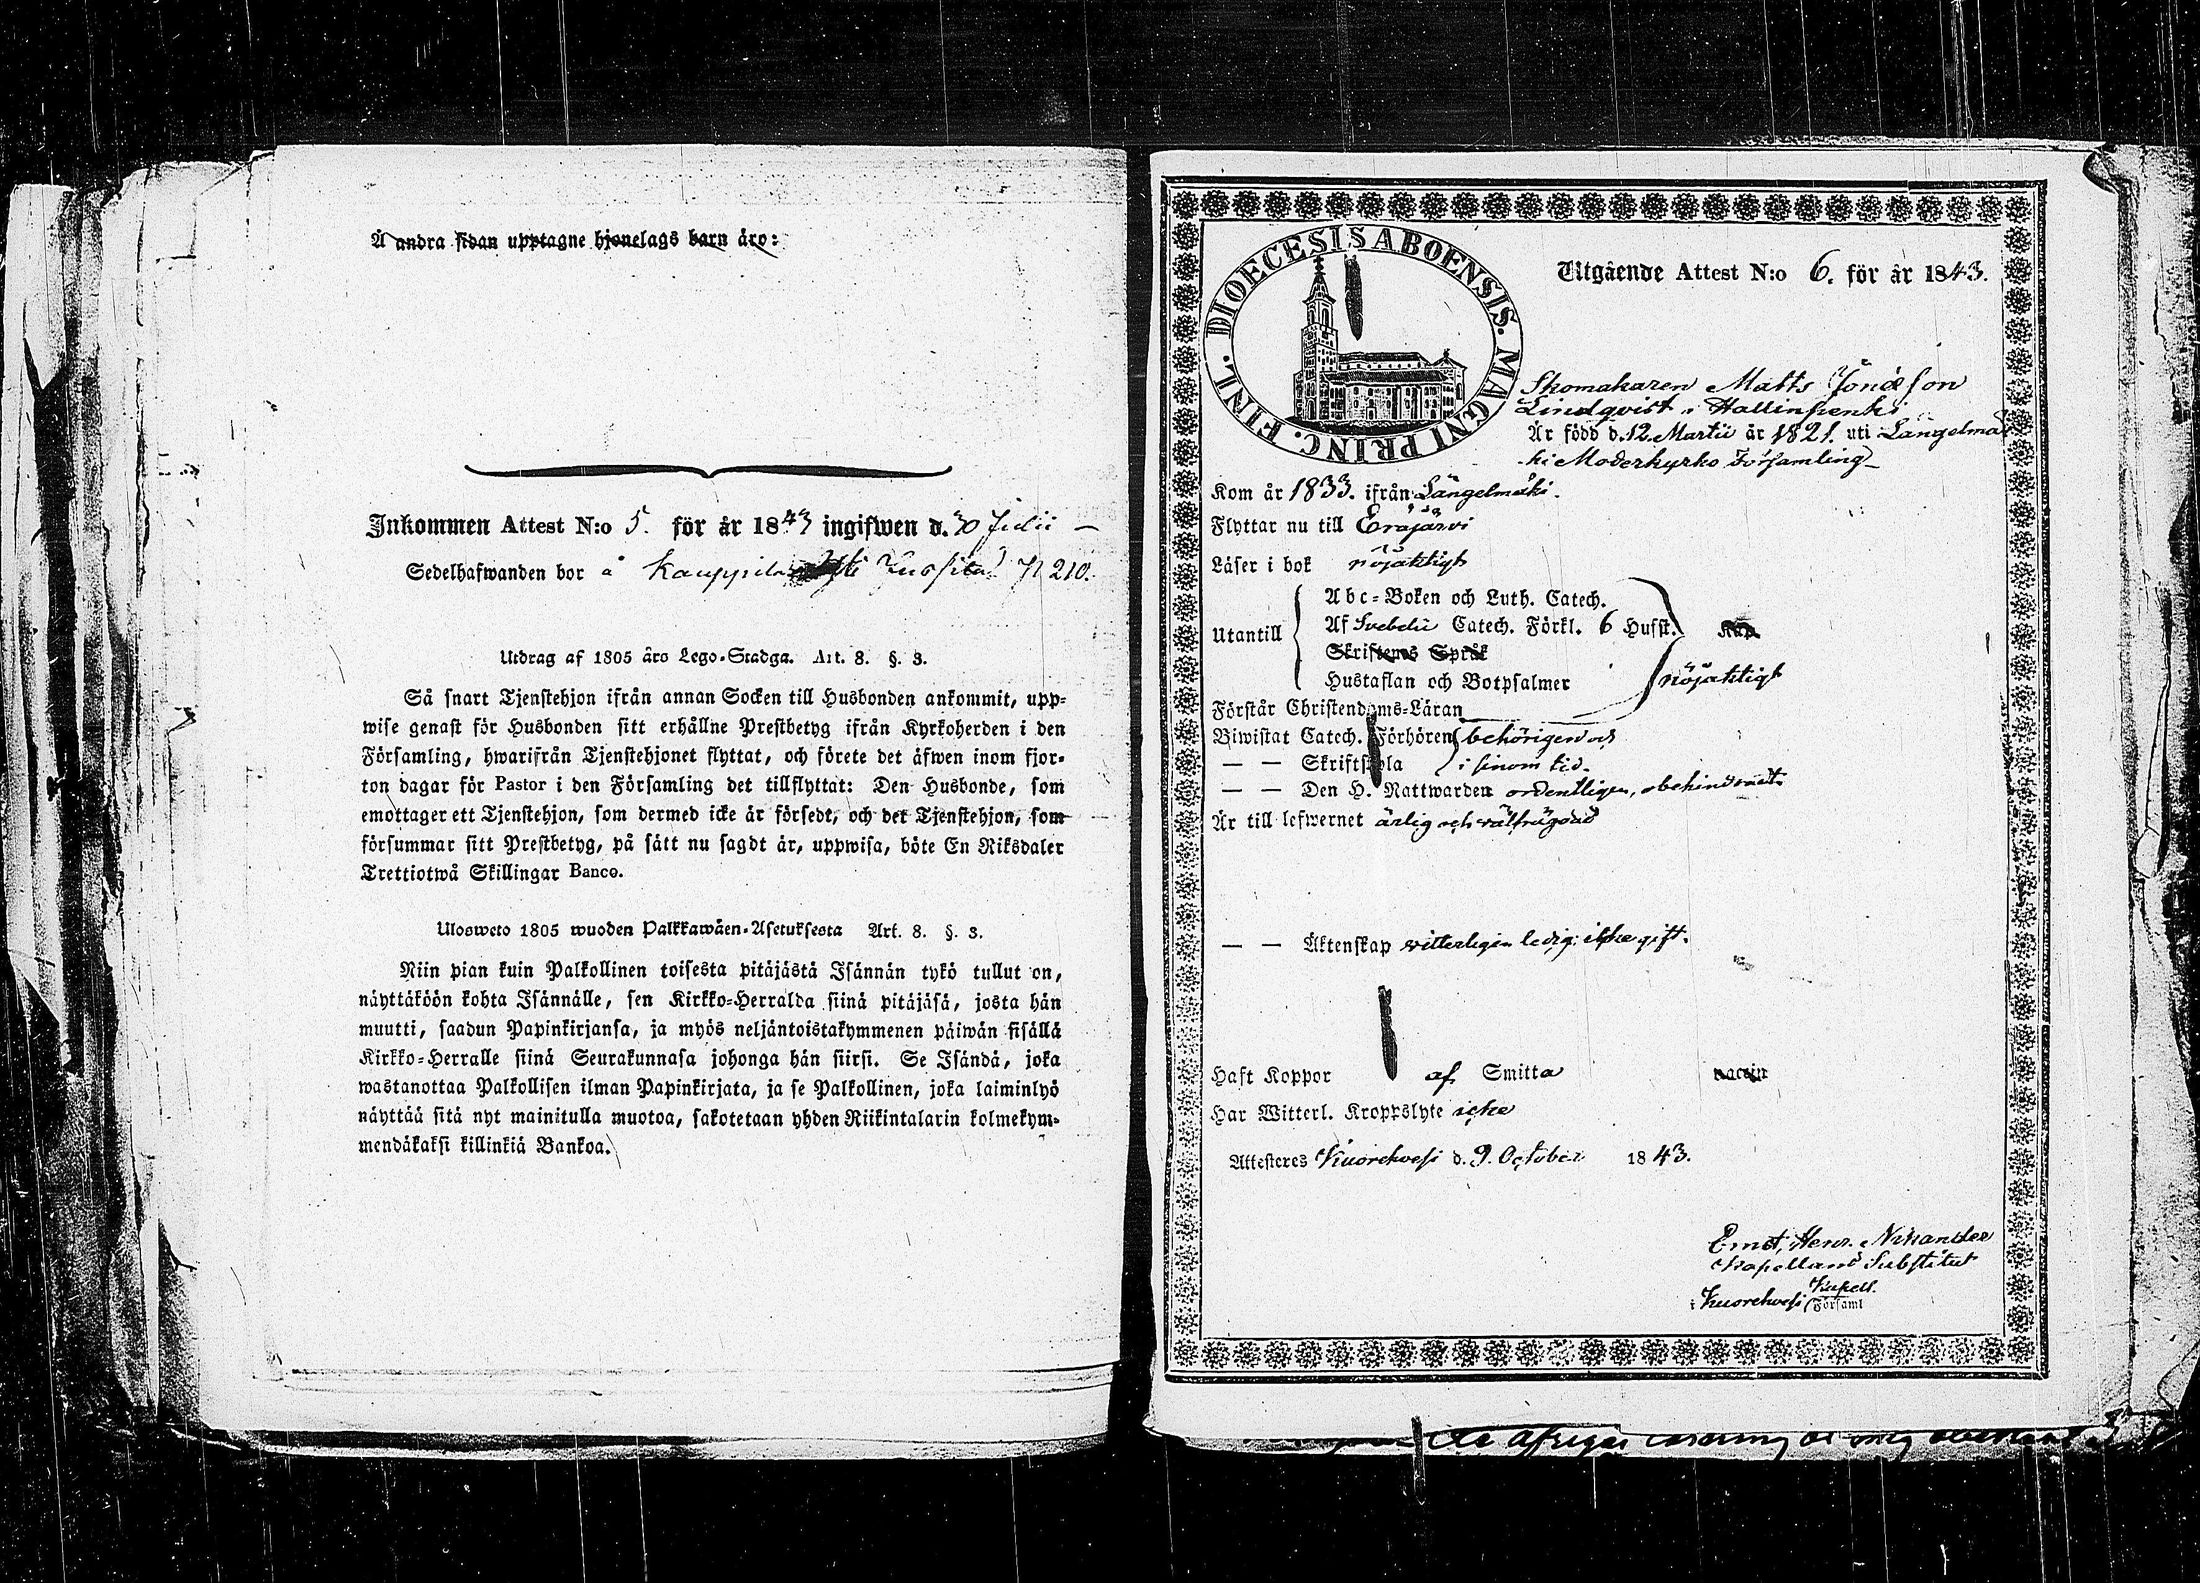 A andra sidan upptagne hjonelags barn äro:
Inkommen Attest N:o 5. för år 1843 ingifwen d. 30 Julii –
Sedelhafwanden bor å Kauppila N 210.
Utdrag af 1805 års Lego-Stadga. Art. 8. §. 3.
Så snart Tjenstehjon ifrån annan Socken till Husbonden ankommit, upp-
wise genast för Husbonden sitt erhållne Prestbetyg ifrån Kyrkoherden i den
Församling, hwarifrån Tjenstehjonet flyttat, och förete det äfwen inom fjor-
ton dagar för Pastor i den Församling det tillflyttat: Den Husbonde, som
emottager ett Tjenstehjon, som dermed icke är försedt, och det Tjenstehjon, som
försummar sitt Prestbetyg, på sätt nu sagdt är, uppwisa, böte En Riksdaler
Trettiotwå Skillingar Banco.
Ulosweto 1805 wuoden Palkkawäen-Asetuksesta Art. 8. §. 3.
Niin pian kuin Palkollinen toisesta pitäjästä Isännän tykö tullut on,
näyttäköön kohta Isännälle, sen Kirkko-Herralda siinä pitäjäsä, josta hän
muutti, saadun Papinkirjansa, ja myös neljäntoistakymmenen päiwän sisällä
Kirkko-Herralle siinä Seurakunnasa johonga hän siirsi. Se Isändä, joka
wastanottaa Palkollisen ilman Papinkirjata, ja se Palkollinen, joka laiminlyö
näyttää sitä nyt mainitulla muotoa, sakotetaan yhden Riikintalarin kolmekym-
mendäkaksi killinkiä Bankoa.
DIOECESIS ABOENSIS. MAGNI PRINC. FINL.
Utgående Attest N:o 6. för år 1843.
Skomakaren Matts Jonæson
Lindqvist i Hallinpenki
Är född d. 12. Martii år 1821. uti Längelmä
ki Moderkyrko Församling
Kom år 1833. ifrån Längelmäki.
Flyttar nu till Eräjärvi
Läser i bok nöjaktigt
Utantill
Abc-Boken och Luth. Catech.
Af Svebelii Catech. Förkl. 6 Hufst.
Skriftenes Språk
Hustaflan och Botpsalmer
nöjaktigt
Förstår Christendoms-Läran
Biwistat Catech. Förhören behörigen och
— — Skriftskola i sinom tid.
— — Den H. Nattwarden ordentligen, obehindradt
Är till lefwernet ärlig och välfrägdad
— — Äktenskap vitterligen ledig: icke gift.
Haft Koppor af Smitta
Har Witterl. Kroppslyte icke
Attesteres Kuorehvesi d. 9. October 1843.
Ernst Henr. Nikander
Kapellans Substitut
Kapell.
i Kuorehvesi Församl